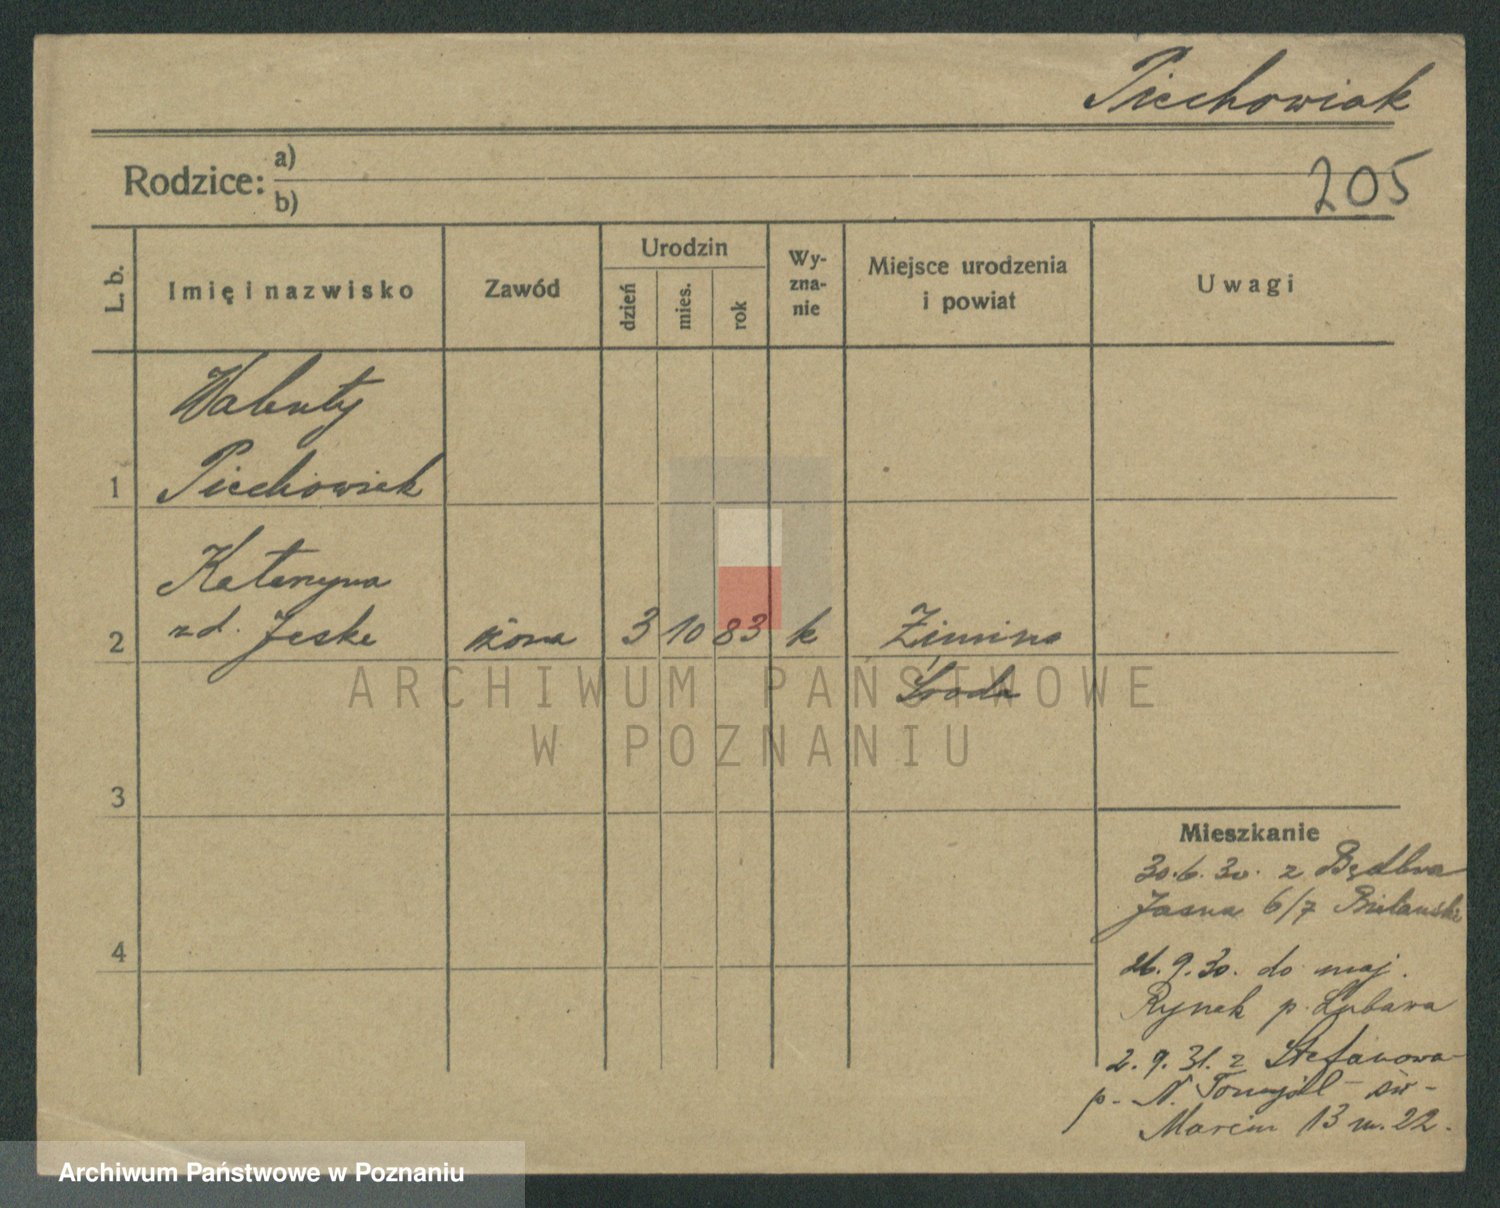 Piechowiak
Rodzice: a)
b)
205
L. b.
Imię i nazwisko
Zawód
Urodzin
dzień
mies.
rok
Wy-
zna-
nie
Miejsce urodzenia
i powiat
Uwagi
Walenty
1 Piechowiak
Katarzyna
2 zd. Jeske żona 3 10 83 k Zimino
Środa
3
4
Mieszkanie
30.6.30. z Będlewa
Jasna 6/7
26.9.30. do maj.
Rynek p. Lubawa
2.9.31. z Stefanowa
p. N. Tomyśl – św.
Marcin 13 m. 22.
ARCHIWUM PAŃSTWOWE
W POZNANIU
Archiwum Państwowe w Poznaniu